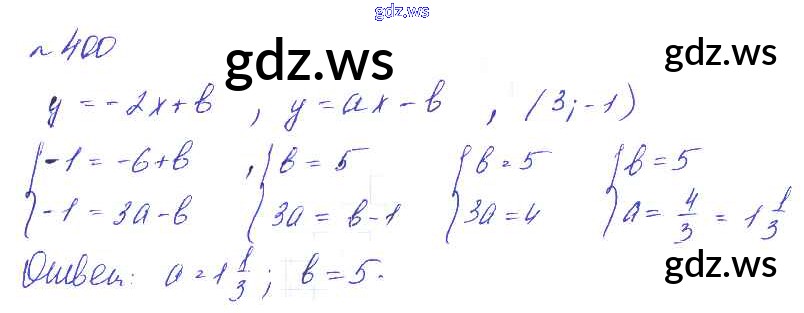 gdz.ws
№ 400
gdz.ws
gdz.ws
y = -2x + b, y = ax - b, (3; -1)
{ -1 = -6 + b, { b = 5 { b = 5 { b = 5
{ -1 = 3a - b { 3a = b - 1 { 3a = 4 { a = 4/3 = 1 1/3
Ответ: a = 1 1/3; b = 5.
gdz.ws
gdz.ws